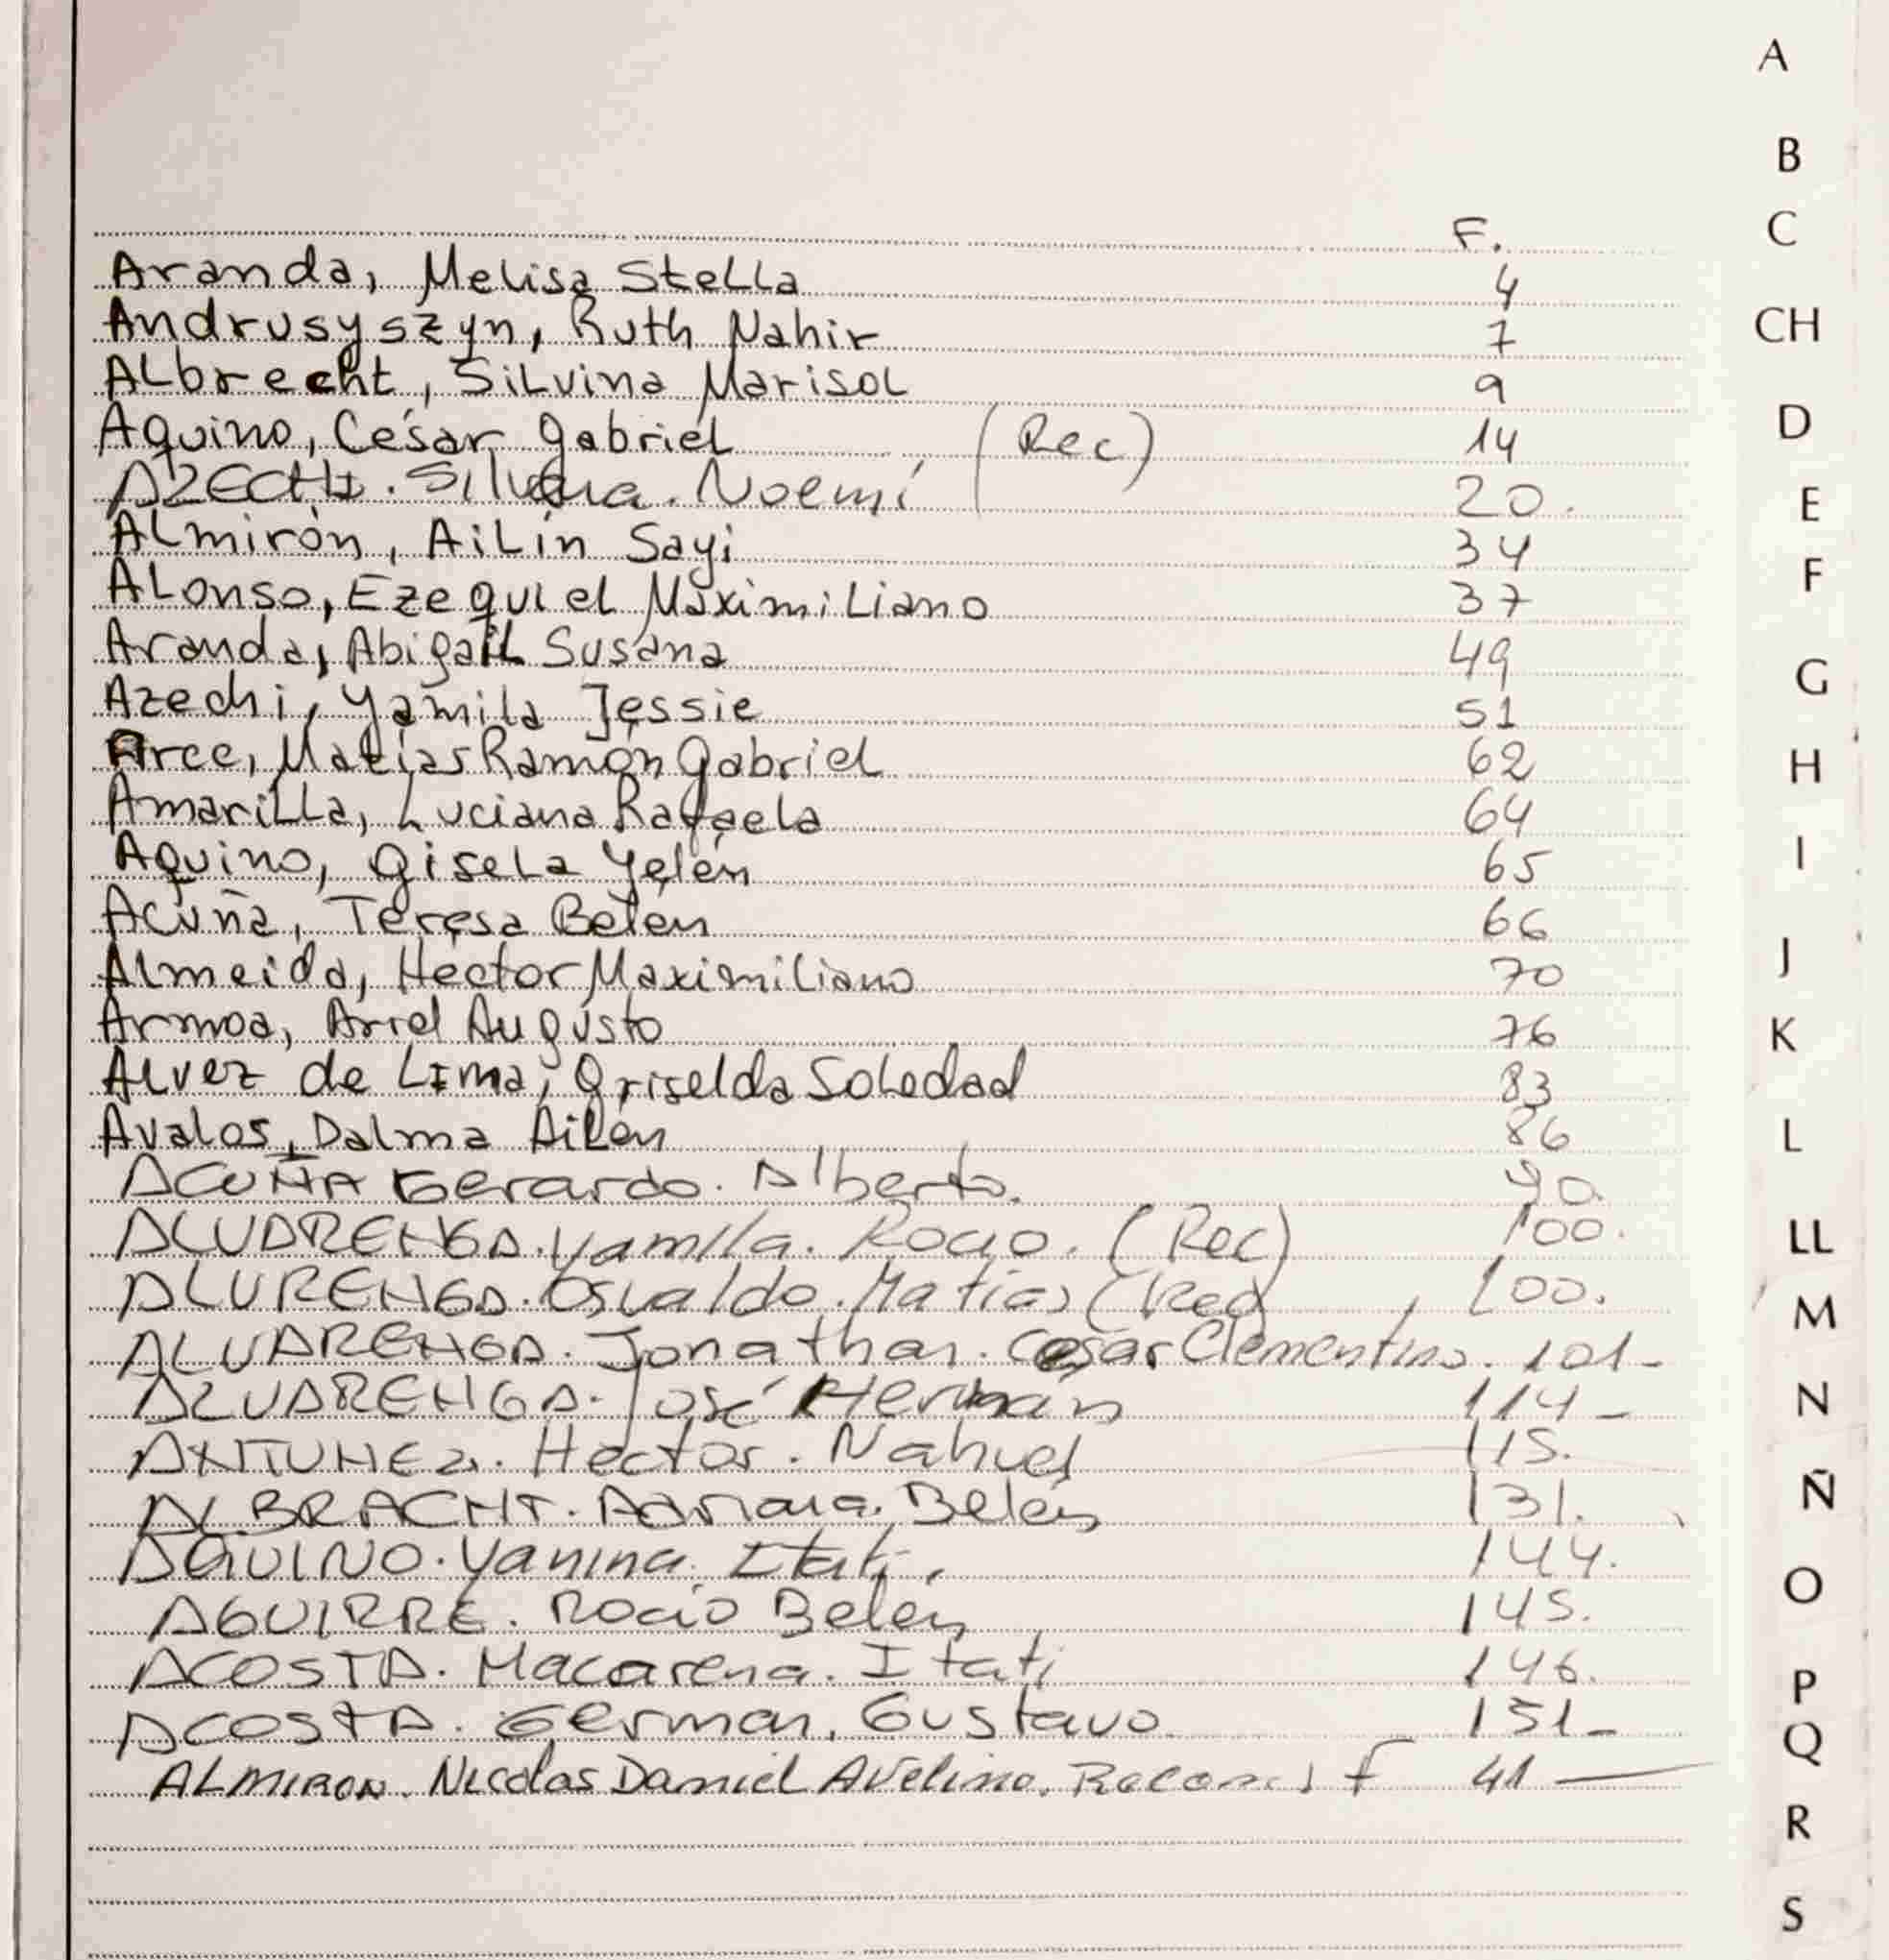 A
B
C
F.
Aranda, Melisa Stella 4
Andrusyszyn, Ruth Nahir 7
CH
Albrecht, Silvina Marisol 9
Aquino, César Gabriel (Rec) 14
D
AZECHI. Silvana. Noemí 20.
E
Almirón, Ailín Sayi 34
F
Alonso, Ezequiel Maximiliano 37
Aranda, Abigail Susana 49
G
Azechi, Yamila Jessie 51
Arce, Matías Ramón Gabriel 62
H
Amarilla, Luciana Rafaela 64
Aquino, Gisela Yelén 65
I
Acuña, Teresa Belén 66
Almeida, Hector Maximiliano 70
J
Armoa, Ariel Augusto 76
K
Alvez de Lima, Griselda Soledad 83
Avalos, Dalma Ailén 86
L
ACUÑA Gerardo. Alberto. 90.
ALVARENGA. Yamila. Rocio. (Rec) 100.
LL
ALVRENGA. Osvaldo. Matias (Rec) 100.
M
ALVARENGA. Jonathan. Cesar Clementino. 101-
ALVARENGA. José Hernán 114-
N
ANTUNEZ. Hector. Nahuel 115.
ALBRACHT. Adriana. Belén 131.
Ñ
AQUINO. Yanina. Itatí. 144.
O
AGUIRRE. Rocio Belen 145.
ACOSTA. Macarena. Itati 146.
P
ACOSTA. German. Gustavo 151-
Q
ALMIRON. Nicolas Daniel Avelino. F 41 —
R
S